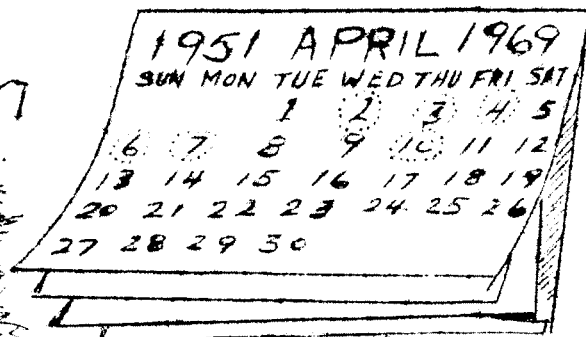 1951 APRIL 1969
SUN MON TUE WED THU FRI SAT
1 2 3 4 5
6 7 8 9 10 11 12
13 14 15 16 17 18 19
20 21 22 23 24 25 26
27 28 29 30